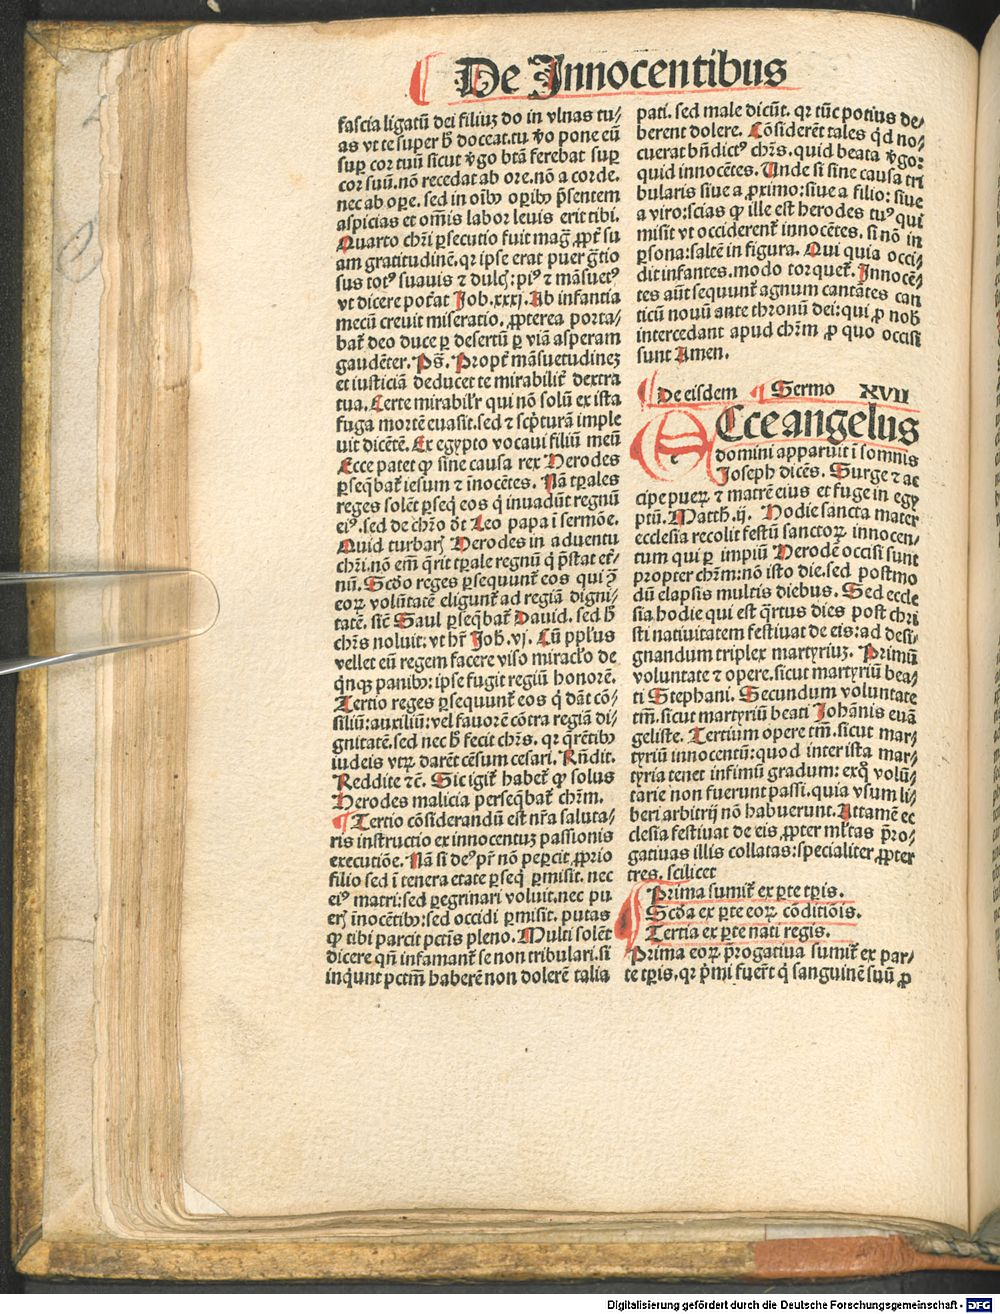 De Innocentibus
fascia ligatū dei filiuʒ do in vlnas tu⸗
as vt te super hͦ doceat. tu ꝟo pone eū
suꝑ cor tuū sicut ꝟgo btā ferebat suꝑ
cor suū. nō recedat ab ore. nō a corde.
nec ab oꝑe. sed in oībꝰ oꝑibꝰ p̄sentem
aspicias et om̄is labor leuis erit tibi.
Quarto chr̄i ꝑsecutio fuit mag̅ ꝓpt̄ su
am gratitudinē. qꝛ ipse erat puer gr̄tio
sus totꝰ suauis ⁊ dulcꝭ: piꝰ ⁊ māsuetꝰ
vt dicere pot̄at Job. xxxj. Ab infantia
mecū creuit miseratio. ꝓpterea porta⸗
bat̄ deo duce ꝑ desertū ꝑ viā asperam
gaudēter. Ps̄. Propt̄ māsuetudineʒ
et iusticiā deducet te mirabilit̄ dextra
tua. Certe mirabilr̄ qui nō solū ex ista
fuga mortē euasit. sed ⁊ scp̄turā imple
uit dicētē. Ex egypto vocaui filiū meū
Ecce patet ꝙ sine causa rex Herodes
ꝑseq̄bat̄ iesum ⁊ īnocētes. Nā tꝑales
reges solēt ꝑseq̄ eos q̇ inuadūt regnū
eiꝰ. sed de chr̄o dt̄ Leo papa ī sermōe.
Quid turbarꝭ Herodes in aduentu
chr̄i. nō em̄ q̄rit tꝑale regnū q̇ p̄stat et̄⸗
nū. Scd̄o reges ꝑsequunt̄ eos qui ꝯ̄
eoꝝ volūtatē eligunt̄ ad regiā digni⸗
tatē. sic̄ Saul ꝑseq̄bat̄ Dauid. sed hͦ
chr̄s noluit: vt hr̄ Joh. vj. Cū pplꝰus
vellet eū regem facere viso miraclo de
q̇nqꝫ panibꝰ: ipse fugit regiū honorē.
Tertio reges ꝑsequunt̄ eos q̇ dāt cō⸗
siliū: auxiliū: vel fauorē cōtra regiā di⸗
gnitatē. sed nec hͦ fecit chr̄s. qꝛ q̄rētibꝰ
iudeis vtꝝ darēt cēsum cesari. Rn̄dit.
Reddite ⁊c̄. Sic igit̄ habet̄ ꝙ solus
Herodes malicia perseq̄bat̄ chr̄m.
Tertio cōsiderandū est nr̄a saluta⸗
ris instructio ex innocentuʒ passionis
executiōe. Nā si deꝰ pr̄ nō peꝑcit ꝓprio
filio sed ī tenera etate ꝑseq̄ ꝑmisit. nec
eiꝰ matri: sed ꝑegrinari voluit. nec pu
erꝭ īnocētibꝰ: sed occidi ꝑmisit. putas
ꝙ tibi parcit pctīs pleno. Multi solēt
dicere qn̄ infamant̄ se non tribulari. si
inq̇unt pctm̄ haberēt non dolerēt talia
pati. sed male dicūt. qꝛ tūc potius de⸗
berent dolere. Cōsiderēt tales q̇d no⸗
cuerat bn̄dictꝰ chr̄s. quid beata ꝟgo:
quid innocētes. Unde si sine causa tri
bularis siue a ꝓximo: siue a filio: siue
a viro: scias ꝙ ille est herodes tuꝰ qui
misit vt occiderent̄ innocētes. si nō in
ꝑsona: saltē in figura. Qui quia occi⸗
dit infantes. modo torquet̄. Innocē⸗
tes aūt sequunt̄ agnum cantātes can
ticū nouū ante thronū dei: qui ꝓ nobꝭ
intercedant apud chr̄m ꝓ quo occisi
sunt Amen.
De eisdem Sermo XVII
Ecce angelus
domini apparuit ī somnis
Joseph dicēs. Surge ⁊ ac
cipe pueꝝ ⁊ matrē eius et fuge in egy
ptū. Matth. ij. Hodie sancta mater
ecclesia recolit festū sanctoꝝ innocen⸗
tum qui ꝑ impiū Herodē occisi sunt
propter chr̄m: nō isto die. sed postmo
dū elapsis multis diebus. Sed eccle
sia hodie qui est q̄rtus dies post chri
sti natiuitatem festiuat de eis: ad desi⸗
gnandum triplex martyriuʒ. Primū
voluntate ⁊ opere. sicut martyriū bea⸗
ti Stephani. Secundum voluntate
tm̄. sicut martyriū beati Johānis euā
geliste. Tertium opere tm̄. sicut mar⸗
tyriū innocentū: quod inter ista mar⸗
tyria tenet infimū gradum: exq̊ volū⸗
tarie non fuerunt passi. quia vsum li⸗
beri arbitrij nō habuerunt. Attamē ec
clesia festiuat de eis ꝓpter ml̄tas p̄ro⸗
gatiuas illis collatas: specialiter ꝓpter
tres. scilicet
Prima sumit̄ ex ꝑte tꝑis.
Scd̄a ex ꝑte eoꝝ cōditiōis.
Tertia ex ꝑte nati regis.
Prima eoꝝ p̄rogatiua sumit̄ ex par⸗
te tꝑis. qꝛ p̄mi fuer̄t q̇ sanguinē suū ꝓ
Digitalisierung gefördert durch die Deutsche Forschungsgemeinschaft - DFG